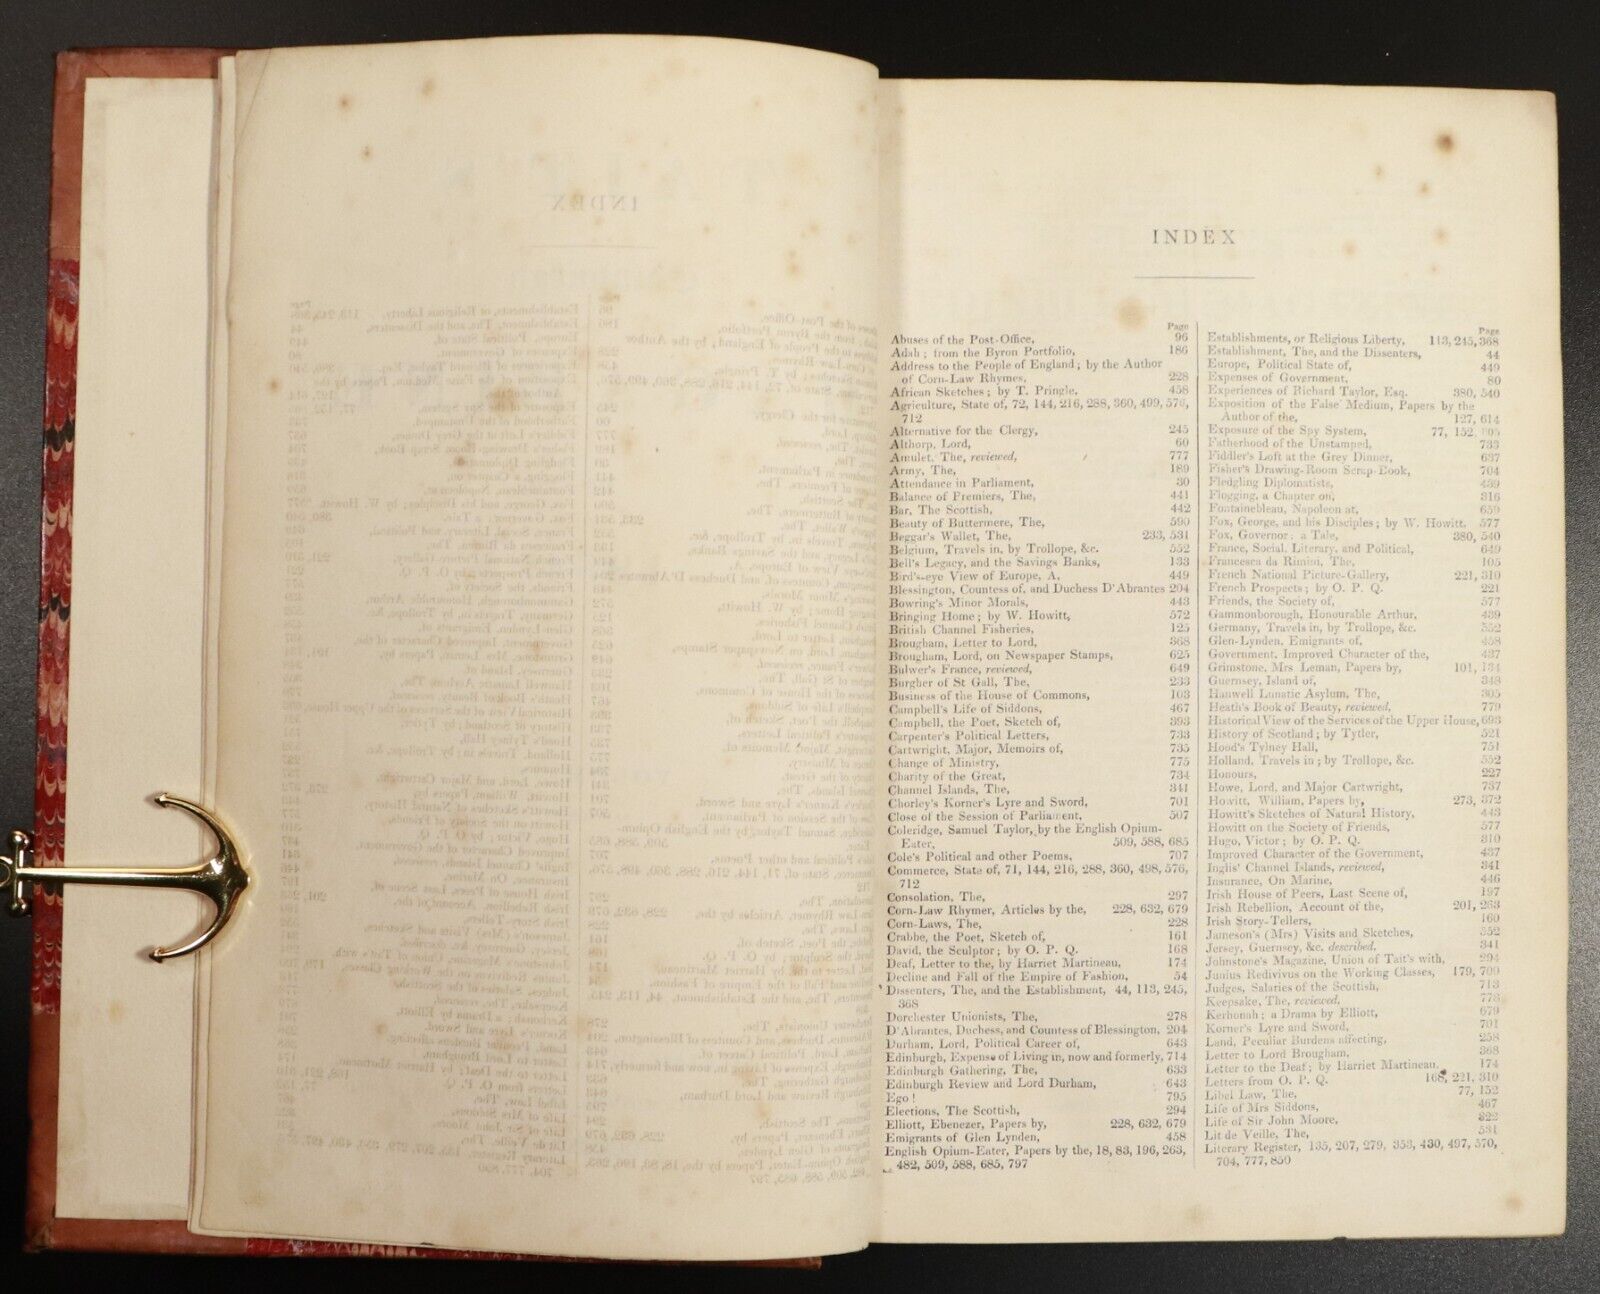 INDEX
Page
Abuses of the Post-Office, 96
Adah; from the Byron Portfolio, 186
Address to the People of England; by the Author
of Corn-Law Rhymes, 228
African Sketches; by T. Pringle, 458
Agriculture, State of, 72, 144, 216, 288, 360, 499, 576,
712
Alternative for the Clergy, 245
Althorp, Lord, 60
Amulet, The, reviewed, 777
Army, The, 189
Attendance in Parliament, 30
Balance of Premiers, The, 441
Bar, The Scottish, 442
Beauty of Buttermere, The, 590
Beggar's Wallet, The, 233, 531
Belgium, Travels in, by Trollope, &c. 552
Bell's Legacy, and the Savings Banks, 133
Bird's-eye View of Europe, A, 449
Blessington, Countess of, and Duchess D'Abrantes 204
Bowring's Minor Morals, 443
Bringing Home; by W. Howitt, 572
British Channel Fisheries, 125
Brougham, Letter to Lord, 368
Brougham, Lord, on Newspaper Stamps, 625
Bulwer's France, reviewed, 649
Burgher of St Gall, The, 233
Business of the House of Commons, 103
Campbell's Life of Siddons, 467
Campbell, the Poet, Sketch of, 393
Carpenter's Political Letters, 733
Cartwright, Major, Memoirs of, 735
Change of Ministry, 775
Charity of the Great, 734
Channel Islands, The, 341
Chorley's Korner's Lyre and Sword, 701
Close of the Session of Parliament, 507
Coleridge, Samuel Taylor, by the English Opium-
Eater, 509, 588, 685
Cole's Political and other Poems, 707
Commerce, State of, 71, 144, 216, 288, 360, 498, 576,
712
Consolation, The, 297
Corn-Law Rhymer, Articles by the, 228, 632, 679
Corn-Laws, The, 228
Crabbe, the Poet, Sketch of, 161
David, the Sculptor; by O. P. Q. 168
Deaf, Letter to the, by Harriet Martineau, 174
Decline and Fall of the Empire of Fashion, 54
Dissenters, The, and the Establishment, 44, 113, 245,
368
Dorchester Unionists, The, 278
D'Abrantes, Duchess, and Countess of Blessington, 204
Durham, Lord, Political Career of, 643
Edinburgh, Expense of Living in, now and formerly, 714
Edinburgh Gathering, The, 633
Edinburgh Review and Lord Durham, 643
Ego! 795
Elections, The Scottish, 294
Elliott, Ebenezer, Papers by, 228, 632, 679
Emigrants of Glen Lynden, 458
English Opium-Eater, Papers by the, 18, 83, 196, 263,
482, 509, 588, 685, 797
Page
Establishments, or Religious Liberty, 113, 245, 368
Establishment, The, and the Dissenters, 44
Europe, Political State of, 449
Expenses of Government, 80
Experiences of Richard Taylor, Esq. 380, 540
Exposition of the False Medium, Papers by the
Author of the, 127, 614
Exposure of the Spy System, 77, 152,
Fatherhood of the Unstamped, 733
Fiddler's Loft at the Grey Dinner, 637
Fisher's Drawing-Room Scrap-Book, 704
Fledgling Diplomatists, 439
Flogging, a Chapter on, 316
Fontainebleau, Napoleon at, 659
Fox, George, and his Disciples; by W. Howitt, 577
Fox, Governor; a Tale, 380, 540
France, Social, Literary, and Political, 649
Francesca da Rimini, The, 105
French National Picture-Gallery, 221, 310
French Prospects; by O. P. Q. 221
Friends, the Society of, 577
Gammonborough, Honourable Arthur, 439
Germany, Travels in, by Trollope, &c. 552
Glen-Lynden, Emigrants of, 458
Government, Improved Character of the, 437
Grimstone, Mrs Leman, Papers by, 101, 134
Guernsey, Island of, 348
Hanwell Lunatic Asylum, The, 305
Heath's Book of Beauty, reviewed, 779
Historical View of the Services of the Upper House, 693
History of Scotland; by Tytler, 521
Hood's Tylney Hall, 751
Holland, Travels in; by Trollope, &c. 552
Honours, 227
Howe, Lord, and Major Cartwright, 737
Howitt, William, Papers by, 273, 372
Howitt's Sketches of Natural History, 443
Howitt on the Society of Friends, 577
Hugo, Victor; by O. P. Q. 310
Improved Character of the Government, 437
Inglis' Channel Islands, reviewed, 341
Insurance, On Marine, 446
Irish House of Peers, Last Scene of, 197
Irish Rebellion, Account of the, 201, 263
Irish Story-Tellers, 160
Jameson's (Mrs) Visits and Sketches, 352
Jersey, Guernsey, &c. described, 341
Johnstone's Magazine, Union of Tait's with, 294
Junius Redivivus on the Working Classes, 179, 709
Judges, Salaries of the Scottish, 713
Keepsake, The, reviewed, 778
Kerhonah; a Drama by Elliott, 679
Korner's Lyre and Sword, 701
Land, Peculiar Burdens affecting, 258
Letter to Lord Brougham, 368
Letter to the Deaf; by Harriet Martineau, 174
Letters from O. P. Q. 168, 221, 310
Libel Law, The, 77, 152
Life of Mrs Siddons, 467
Life of Sir John Moore, 322
Lit de Veille, The, 531
Literary Register, 135, 207, 279, 353, 430, 497, 570,
704, 777, 850